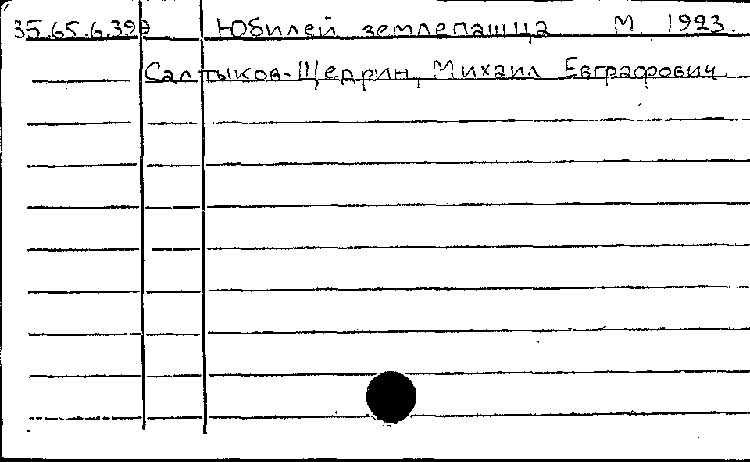 35.65.6.399 Юбилей землепашца М 1923.
Салтыков-Щедрин, Михаил Евграфович.